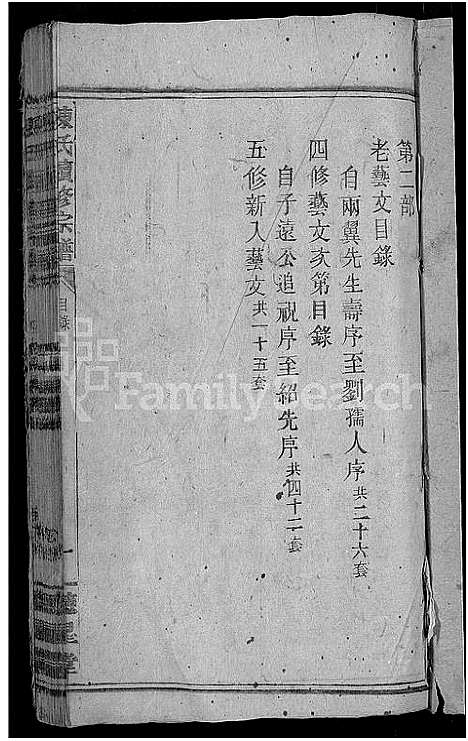 第二部
老藝文目錄
自兩翼先生壽序至劉孺人序共二十六套
四修藝文次第目錄
自子遠公追祝序至紹先序共四十二套
五修新入藝文共一十五套
陳氏續修宗譜
目錄
FamilySearch